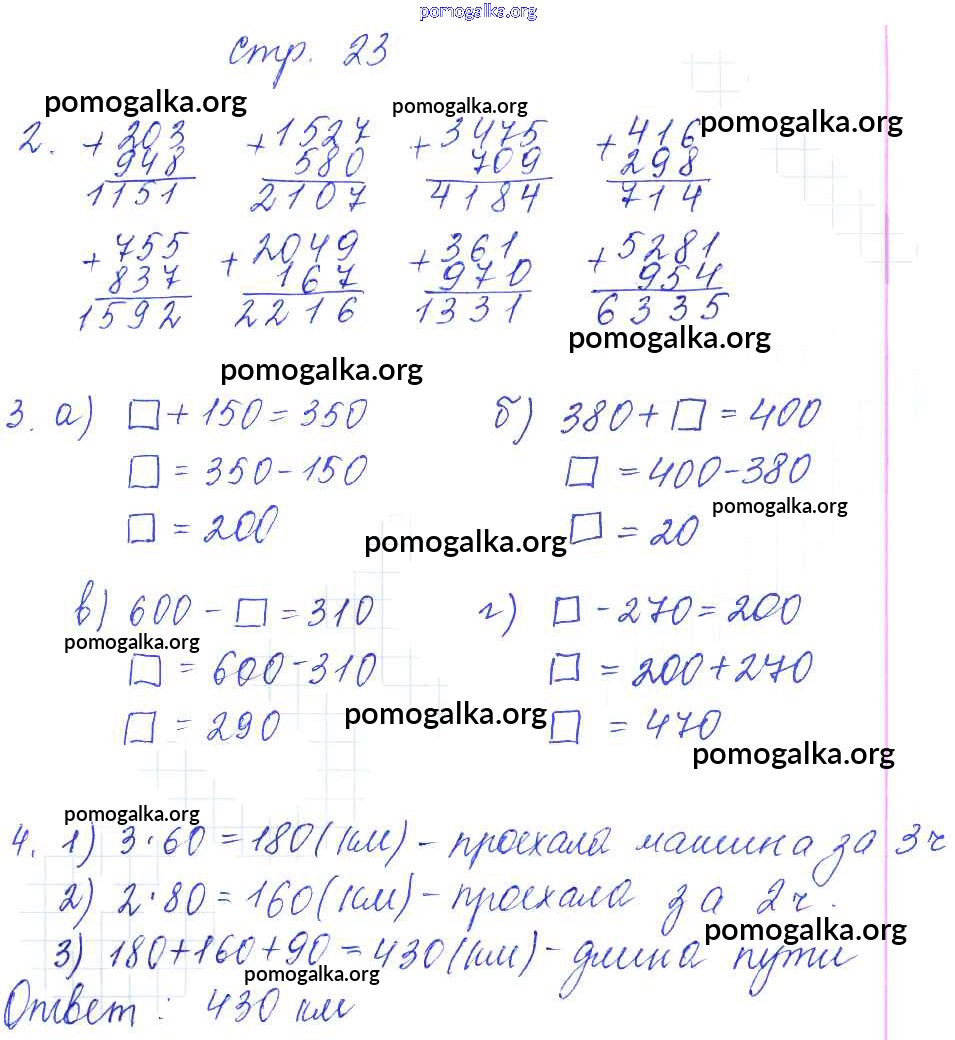 pomogalka.org
стр. 23
pomogalka.org pomogalka.org pomogalka.org
2. + 203 + 1527 + 3475 + 416
948 580 709 298
1151 2107 4184 714
+ 755 + 2049 + 361 + 5281
837 167 970 954
1592 2216 1331 6335
pomogalka.org
pomogalka.org
3. а) □ + 150 = 350 б) 380 + □ = 400
□ = 350 - 150 □ = 400 - 380
pomogalka.org
□ = 200 □ = 20
pomogalka.org
в) 600 - □ = 310 г) □ - 270 = 200
pomogalka.org
□ = 600 - 310 □ = 200 + 270
pomogalka.org
□ = 290 □ = 470
pomogalka.org
pomogalka.org
4. 1) 3 · 60 = 180 (км) - проехала машина за 3 ч
2) 2 · 80 = 160 (км) - проехала за 2 ч.
pomogalka.org
3) 180 + 160 + 90 = 430 (км) - длина пути
pomogalka.org
Ответ : 430 км